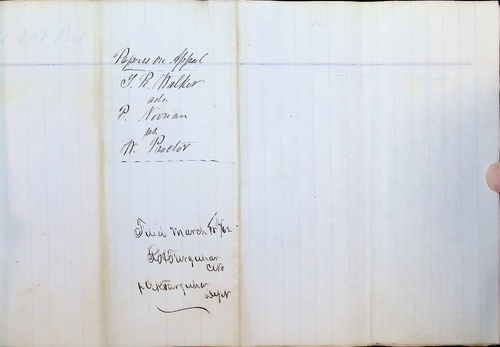 Papers on Appeal
T. R. Walker
ads.
P. Noonan
pr.
W. Proctor
Filed March 10/62
Farquhar
Clk
p Farquhar
Dept